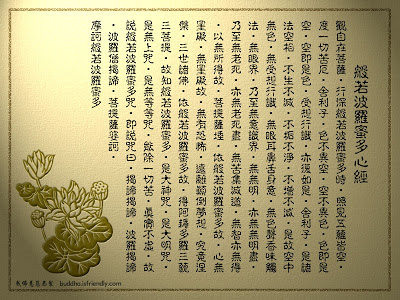 般若波羅蜜多心經
觀自在菩薩‧行深般若波羅蜜多時‧照見五蘊皆空‧
度一切苦厄‧舍利子‧色不異空‧空不異色‧色即是
空‧空即是色‧受想行識‧亦復如是‧舍利子‧是諸
法空相‧不生不滅‧不垢不淨‧不增不減‧是故空中
無色‧無受想行識‧無眼耳鼻舌身意‧無色聲香味觸
法‧無眼界‧乃至無意識界‧無無明‧亦無無明盡
乃至無老死‧亦無老死盡‧無苦集滅道‧無智亦無得
‧以無所得故‧菩提薩埵‧依般若波羅蜜多故‧心無
罣礙‧無罣礙故‧無有恐怖‧遠離顛倒夢想‧究竟涅
槃‧三世諸佛‧依般若波羅蜜多故‧得阿耨多羅三藐
三菩提‧故知般若波羅蜜多‧是大神咒‧是大明咒‧
是無上咒‧是無等等咒‧能除一切苦‧真實不虛‧故
說般若波羅蜜多咒‧即說咒曰‧揭諦揭諦‧波羅揭諦
‧波羅僧揭諦‧菩提薩婆訶‧
摩訶般若波羅蜜多
我佛慈悲 buddha.iefriendly.com